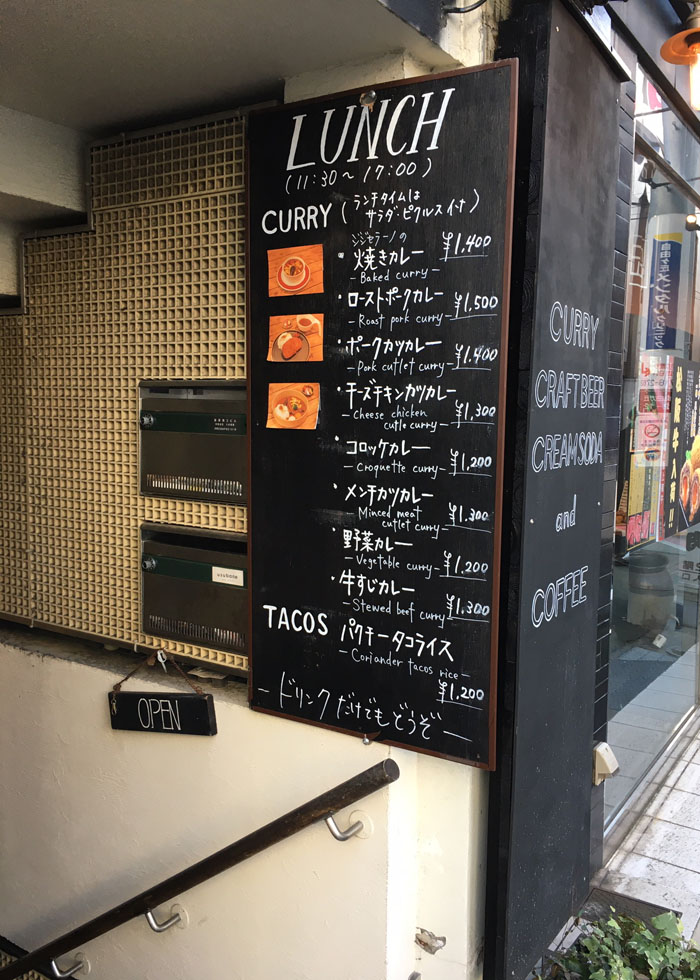 LUNCH
(11:30～17:00)
CURRY (ランチタイムは
サラダ・ピクルスイーナ)
ジジセラーノの
・焼きカレー ¥1,400
- Baked curry -
・ローストポークカレー ¥1,500
- Roast pork curry -
・ポークカツカレー ¥1,400
- Pork cutlet curry -
・チーズチキンカツカレー ¥1,300
- Cheese chicken
cutle curry -
・コロッケカレー ¥1,200
- Croquette curry -
・メンチカツカレー ¥1,300
- Minced meat
cutlet curry -
・野菜カレー ¥1,200
- Vegetable curry -
・牛すじカレー ¥1,300
- Stewed beef curry -
TACOS パクチータコライス
- Coriander tacos rice -
¥1,200
- ドリンクだけでもどうぞ -
OPEN
CURRY
CRAFT BEER
CREAM SODA
and
COFFEE
自由が丘